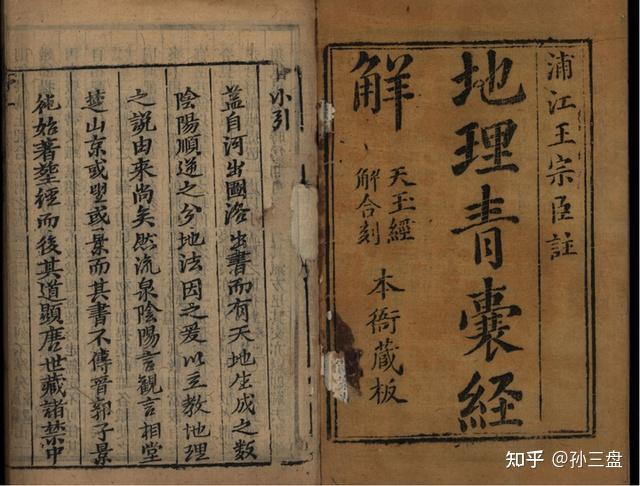 浦江王宗臣註
地理青囊経
解
天玉經
解合刻
本衙蔵板
小引
蓋自河出圖洛出書而有天地生成之数
陰陽順逆之分地法因之爰以立教地理
之說由來尚矣然流泉陰陽言觀言相堂
楚山京或望或景而其書不傳晉郭子景
純始著塟經而後其道顯唐世藏諸禁中
知乎 @孙三盘